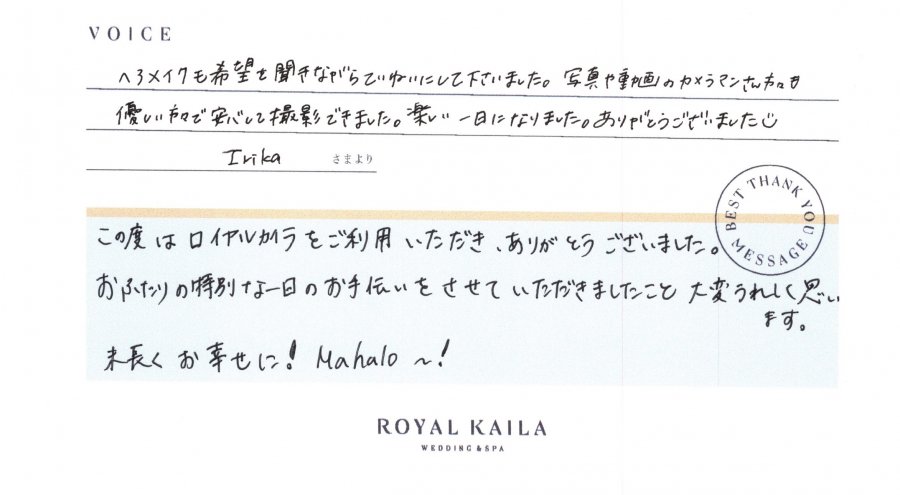 VOICE
ヘアメイクも希望を聞きながらていねいにして下さいました。写真や動画のカメラマンさん方々も
優しい方々で安心して撮影できました。楽しい一日になりました。ありがとうございました
Irika さまより
BEST THANK YOU MESSAGE
この度はロイヤルカイラをご利用いただき、ありがとうございました。
おふたりの特別な一日のお手伝いをさせていただきましたこと大変うれしく思い
ます。
末長くお幸せに！Mahalo～！
ROYAL KAILA
WEDDING & SPA